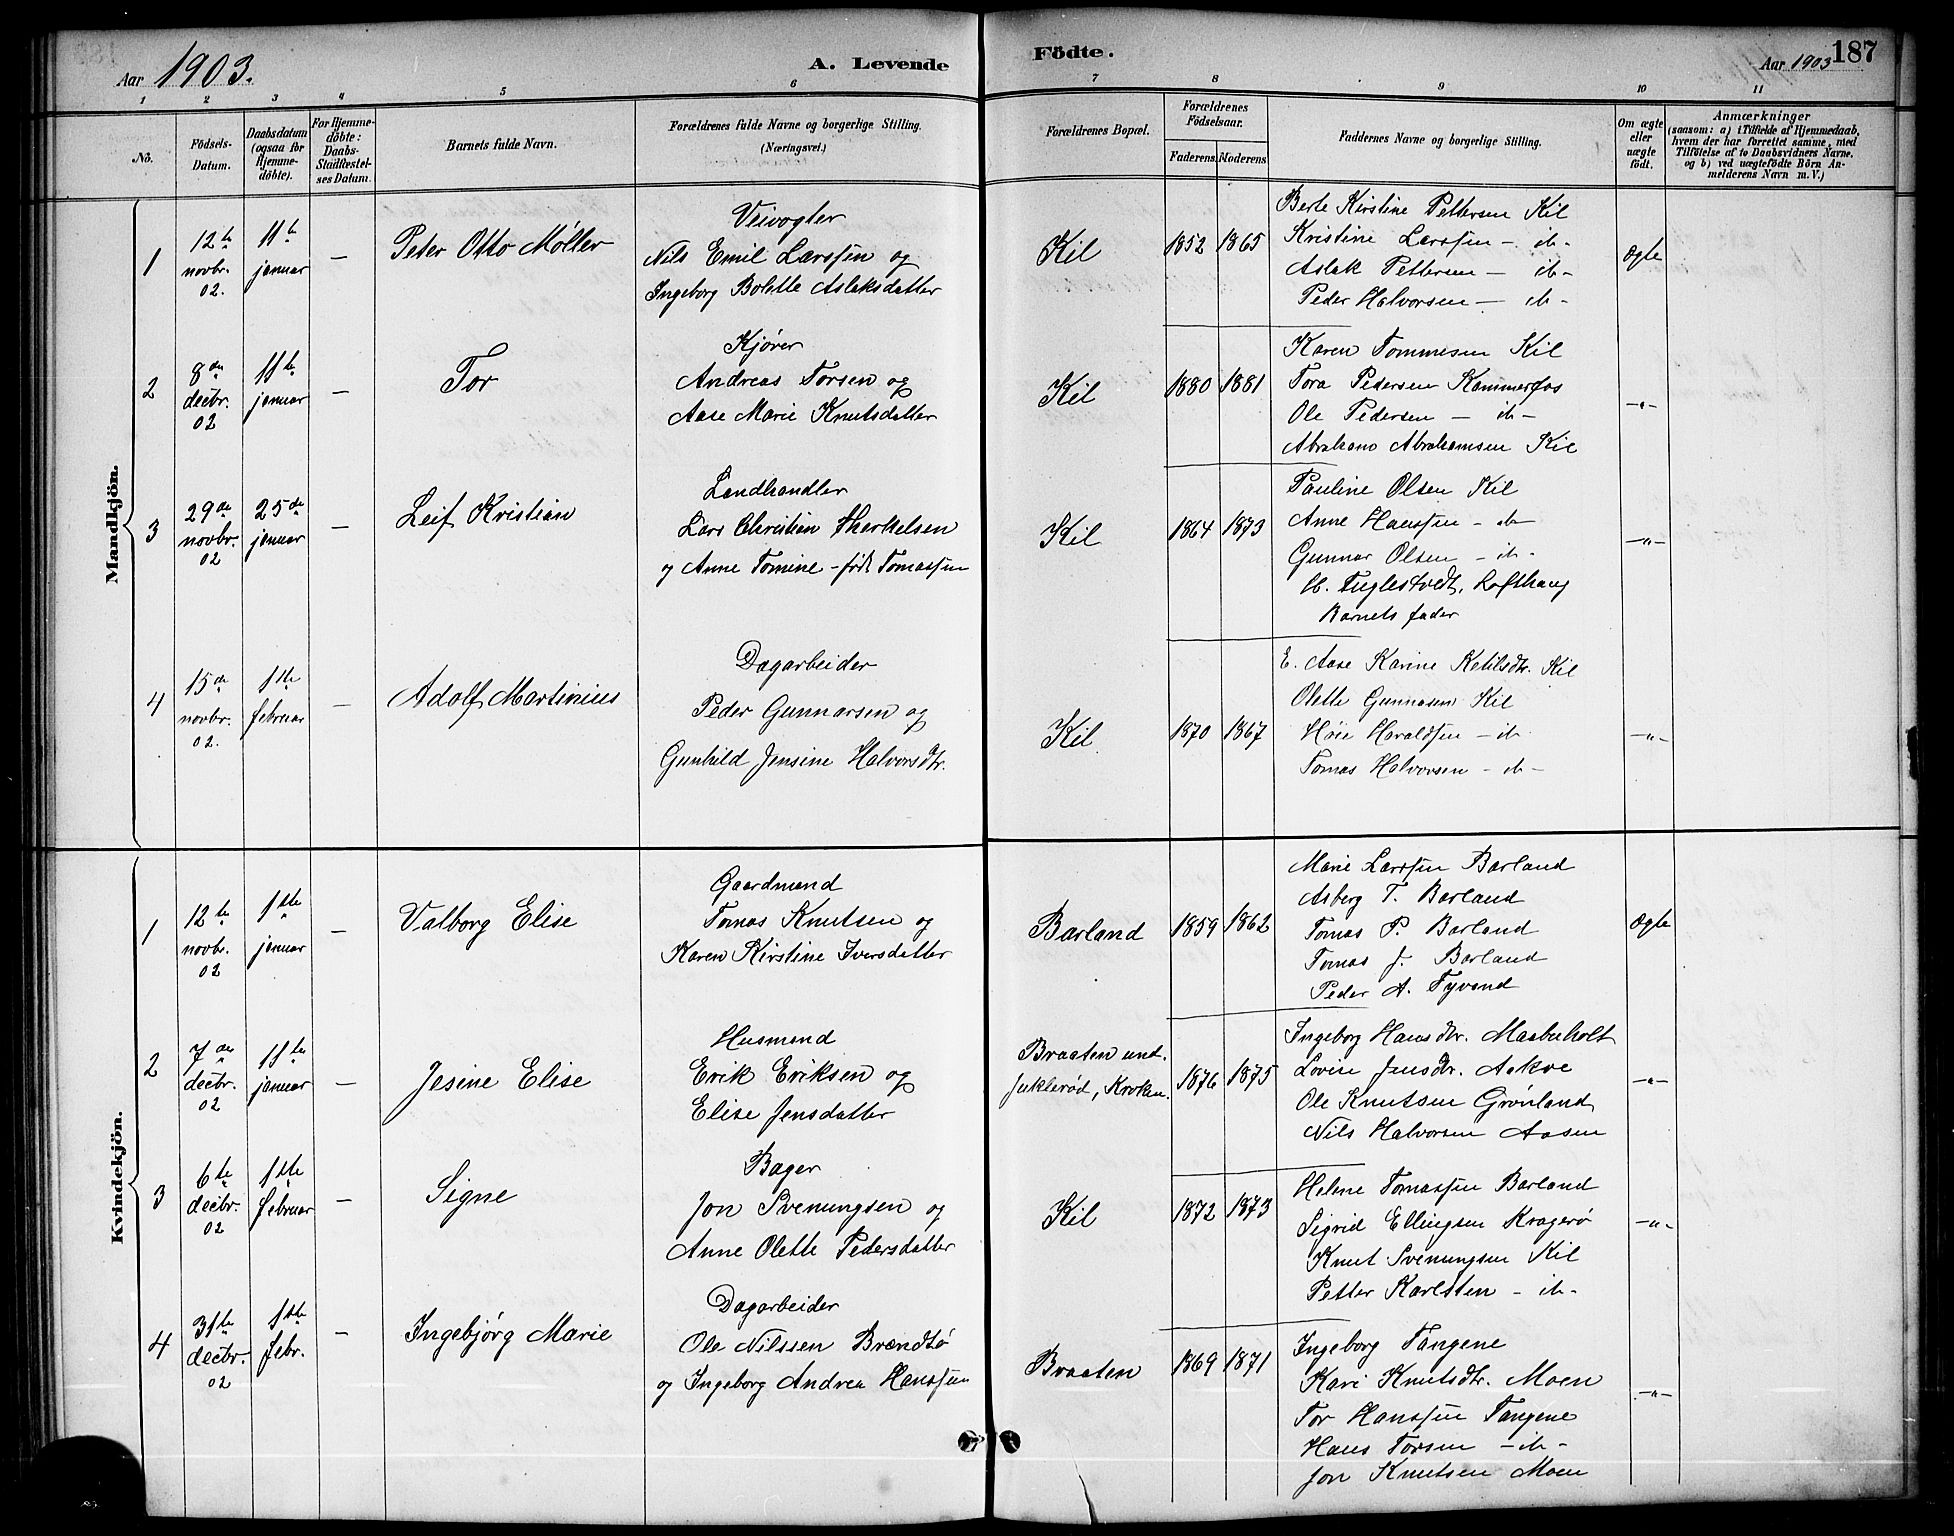 Aar 1903.
A. Levende
Födte.
Aar 1903
187
1 2 3 4 5 6 7 8 9 10 11
No.
Födsels-Datum.
Daabsdatum (ogsaa for Hjemme-döbte).
For Hjemme-döbte: Daabs-Stadfæstel-ses Datum.
Barnets fulde Navn.
Forældrenes fulde Navne og borgerlige Stilling.
(Næringsvei.)
Forældrenes Bopæl.
Forældrenes Födselsaar.
Faderens. Moderens.
Faddernes Navne og borgerlige Stilling.
Om ægte eller uægte födt.
Anmærkninger
(saasom: a) i Tilfælde af Hjemmedaab, hvem der har forrettet samme, med Tilföielse af to Daabsvidners Navne, og b) ved uægtefödte Börn An-melderens Navn m. V.)
Mandkjön.
1
12te novbr. 02.
11te januar
—
Peter Otto Møller
Veivogter
Nils Emil Larssen og
Ingeborg Bolette Aslaksdatter
Kil
1852 1865
Berte Kirstine Pettersen Kil
Kristine Larssen — ib —
Aslak Pettersen — ib —
Peder Halvorsen — ib —
Ægte
2
8de decbr. 02
11te januar
—
Tor
Kjører
Andreas Torsen og
Aase Marie Knutsdatter
Kil
1880 1881
Karen Tommesen Kil
Tora Pedersen Kammerfos
Ole Pedersen — ib —
Abraham Abrahamsen Kil
—"—
3
29de novbr. 02
25de januar
—
Leif Kristian
Landhandler
Lars Christian Therkelsen
og Anne Tomine — født Tomassen
Kil
1864 1873
Pauline Olsen Kil
Anne Hanssen — ib
Gunnar Olsen — ib —
H. Fuglestvedt, Lofthaug
Barnets fader
—"—
4
15de novbr. 02.
1ste februar
—
Adolf Martinius
Dagarbeider
Peder Gunnarsen og
Gunhild Jensine Halvorsdtr.
Kil
1870 1867
E. Aase Karine Ketilsdtr. Kil
Olette Gunnarsen Kil
Haraldsen — ib
Tomas Halvorsen — ib —
—"—
Kvindekjön.
1
12te novbr. 02
1ste januar
—
Valborg Elise
Gaardmand
Tomas Knutsen og
Karen Kirstine Iversdatter
Barland
1859 1862
Marie Larssen Barland
Asberg T. Barland
Tomas P. Barland
Tomas J. Barland
Peder A. Tyvand
Ægte
2
7de decbr. 02
11te januar
—
Jesine Elise
Husmand
Erik Eriksen og
Elise Jensdatter
Braaten und.
Juklerød, Kroken.
1876 1875
Ingeborg Hansdtr. Maabuholt
Lovise Jensdtr. Aakve
Ole Knutsen Grønland
Nils Halvorsen Aasen
—"—
3
6te decbr. 02
1ste februar
—
Signe
Bager
Jon Svenungsen og
Anne Olette Pedersdatter
Kil
1872 1873
Helene Tomassen Barland
Sigrid Ellingsen Kragerø
Knut Svenungsen Kil
Petter Karlsten — ib —
—"—
4
31te decbr. 02
1ste febr.
—
Ingebjørg Marie
Dagarbeider
Ole Nilssen Brændtø
og Ingeborg Andrea Hanssen
Braaten
1869 1871
Ingeborg Tangene
Kari Knutsdtr. Moen
Tor Hanssen Tangene
Hans Torsen — ib —
Jon Knutsen Moen
—"—